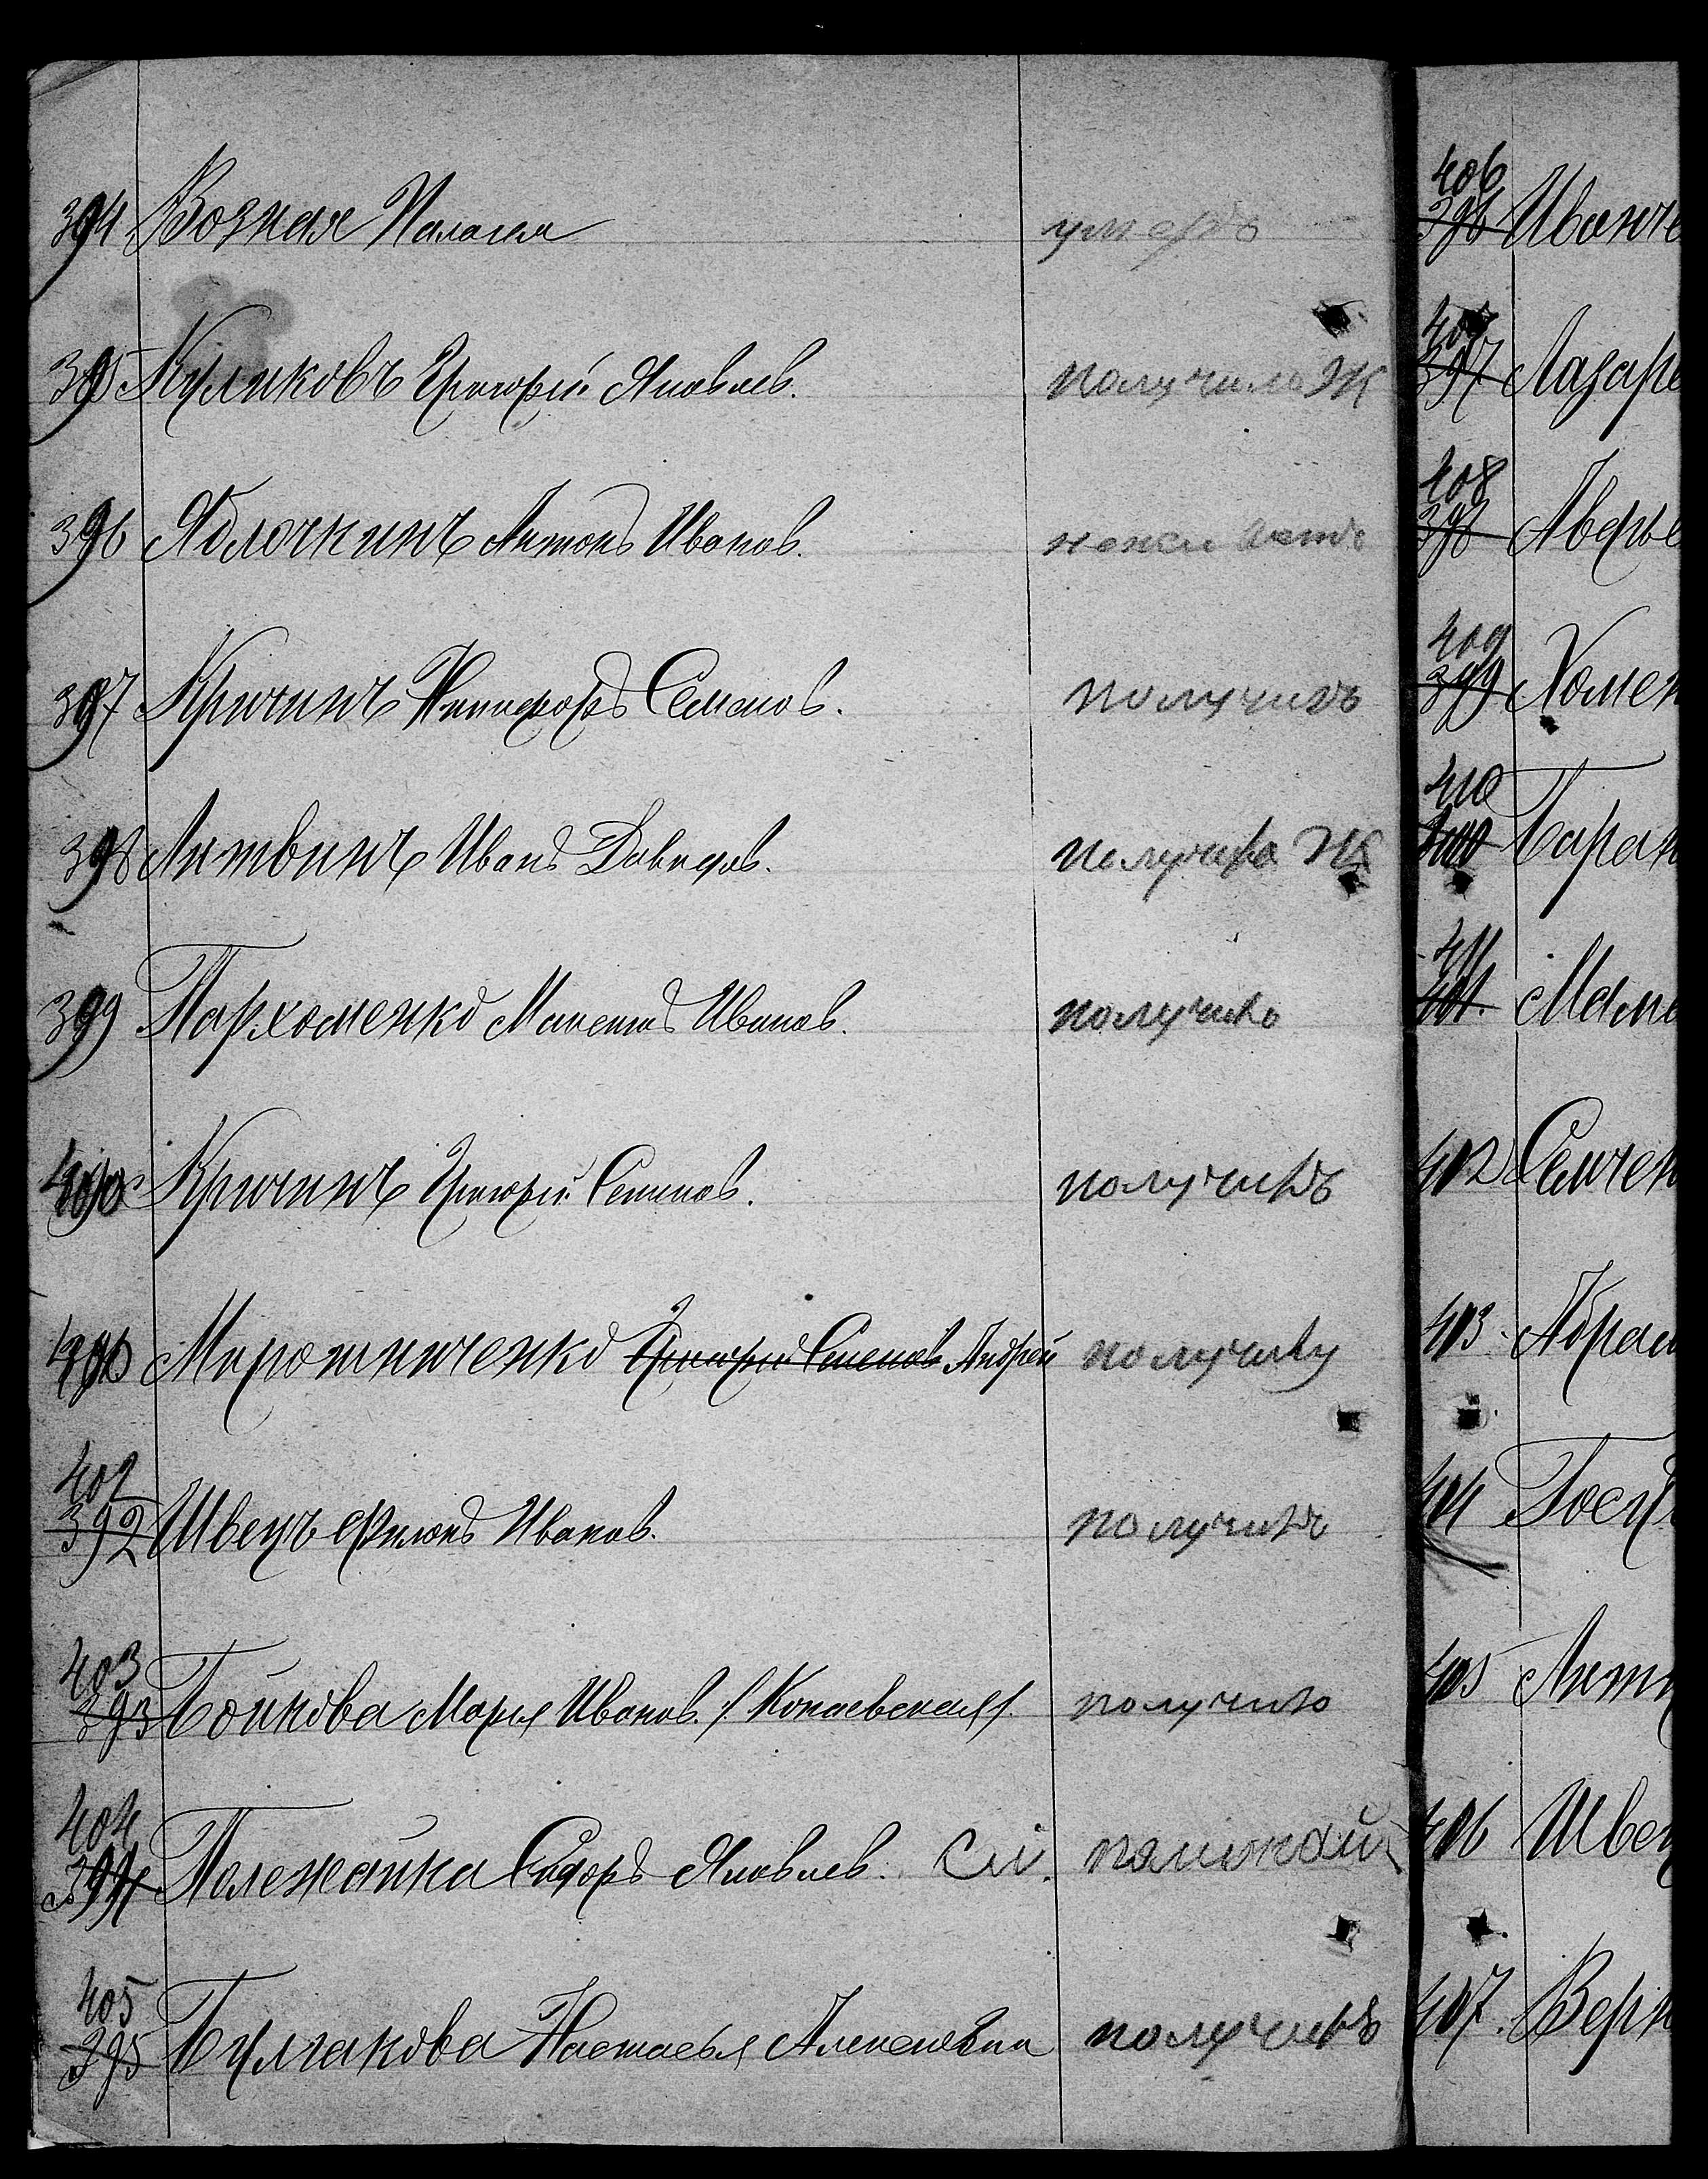 394 Возная Палагея умеръ
395 Куликовъ Григорій Яковлев. получила Ж
396 Яблочкинъ Антонъ Иванов.
397 Крючинъ Никифоръ Семенов. получилъ
398 Литвинъ Иванъ Давидов. получила Ж
399 Пархоменко Максимъ Иванов. получилъ
400 Крючинъ Григорій Семенов. получилъ
Мирошниченко Григорій Семенов Андрей получилъ
402
392 Швецъ Филонъ Иванов. получилъ
403
393 Бойкова Марія Иванов. получилъ
404
394 Полежайка Сидоръ Яковлев.
405
395 Булгакова Настасья Алексеевна получилъ
406
396 Иванче
407
397 Лазаре
408
398 Аверье
409
399 Хомен
410
400 Баран
411
401. Мам
402 Семчен
403 Абрам
404
405 Литв
406 Швец
407. Верн